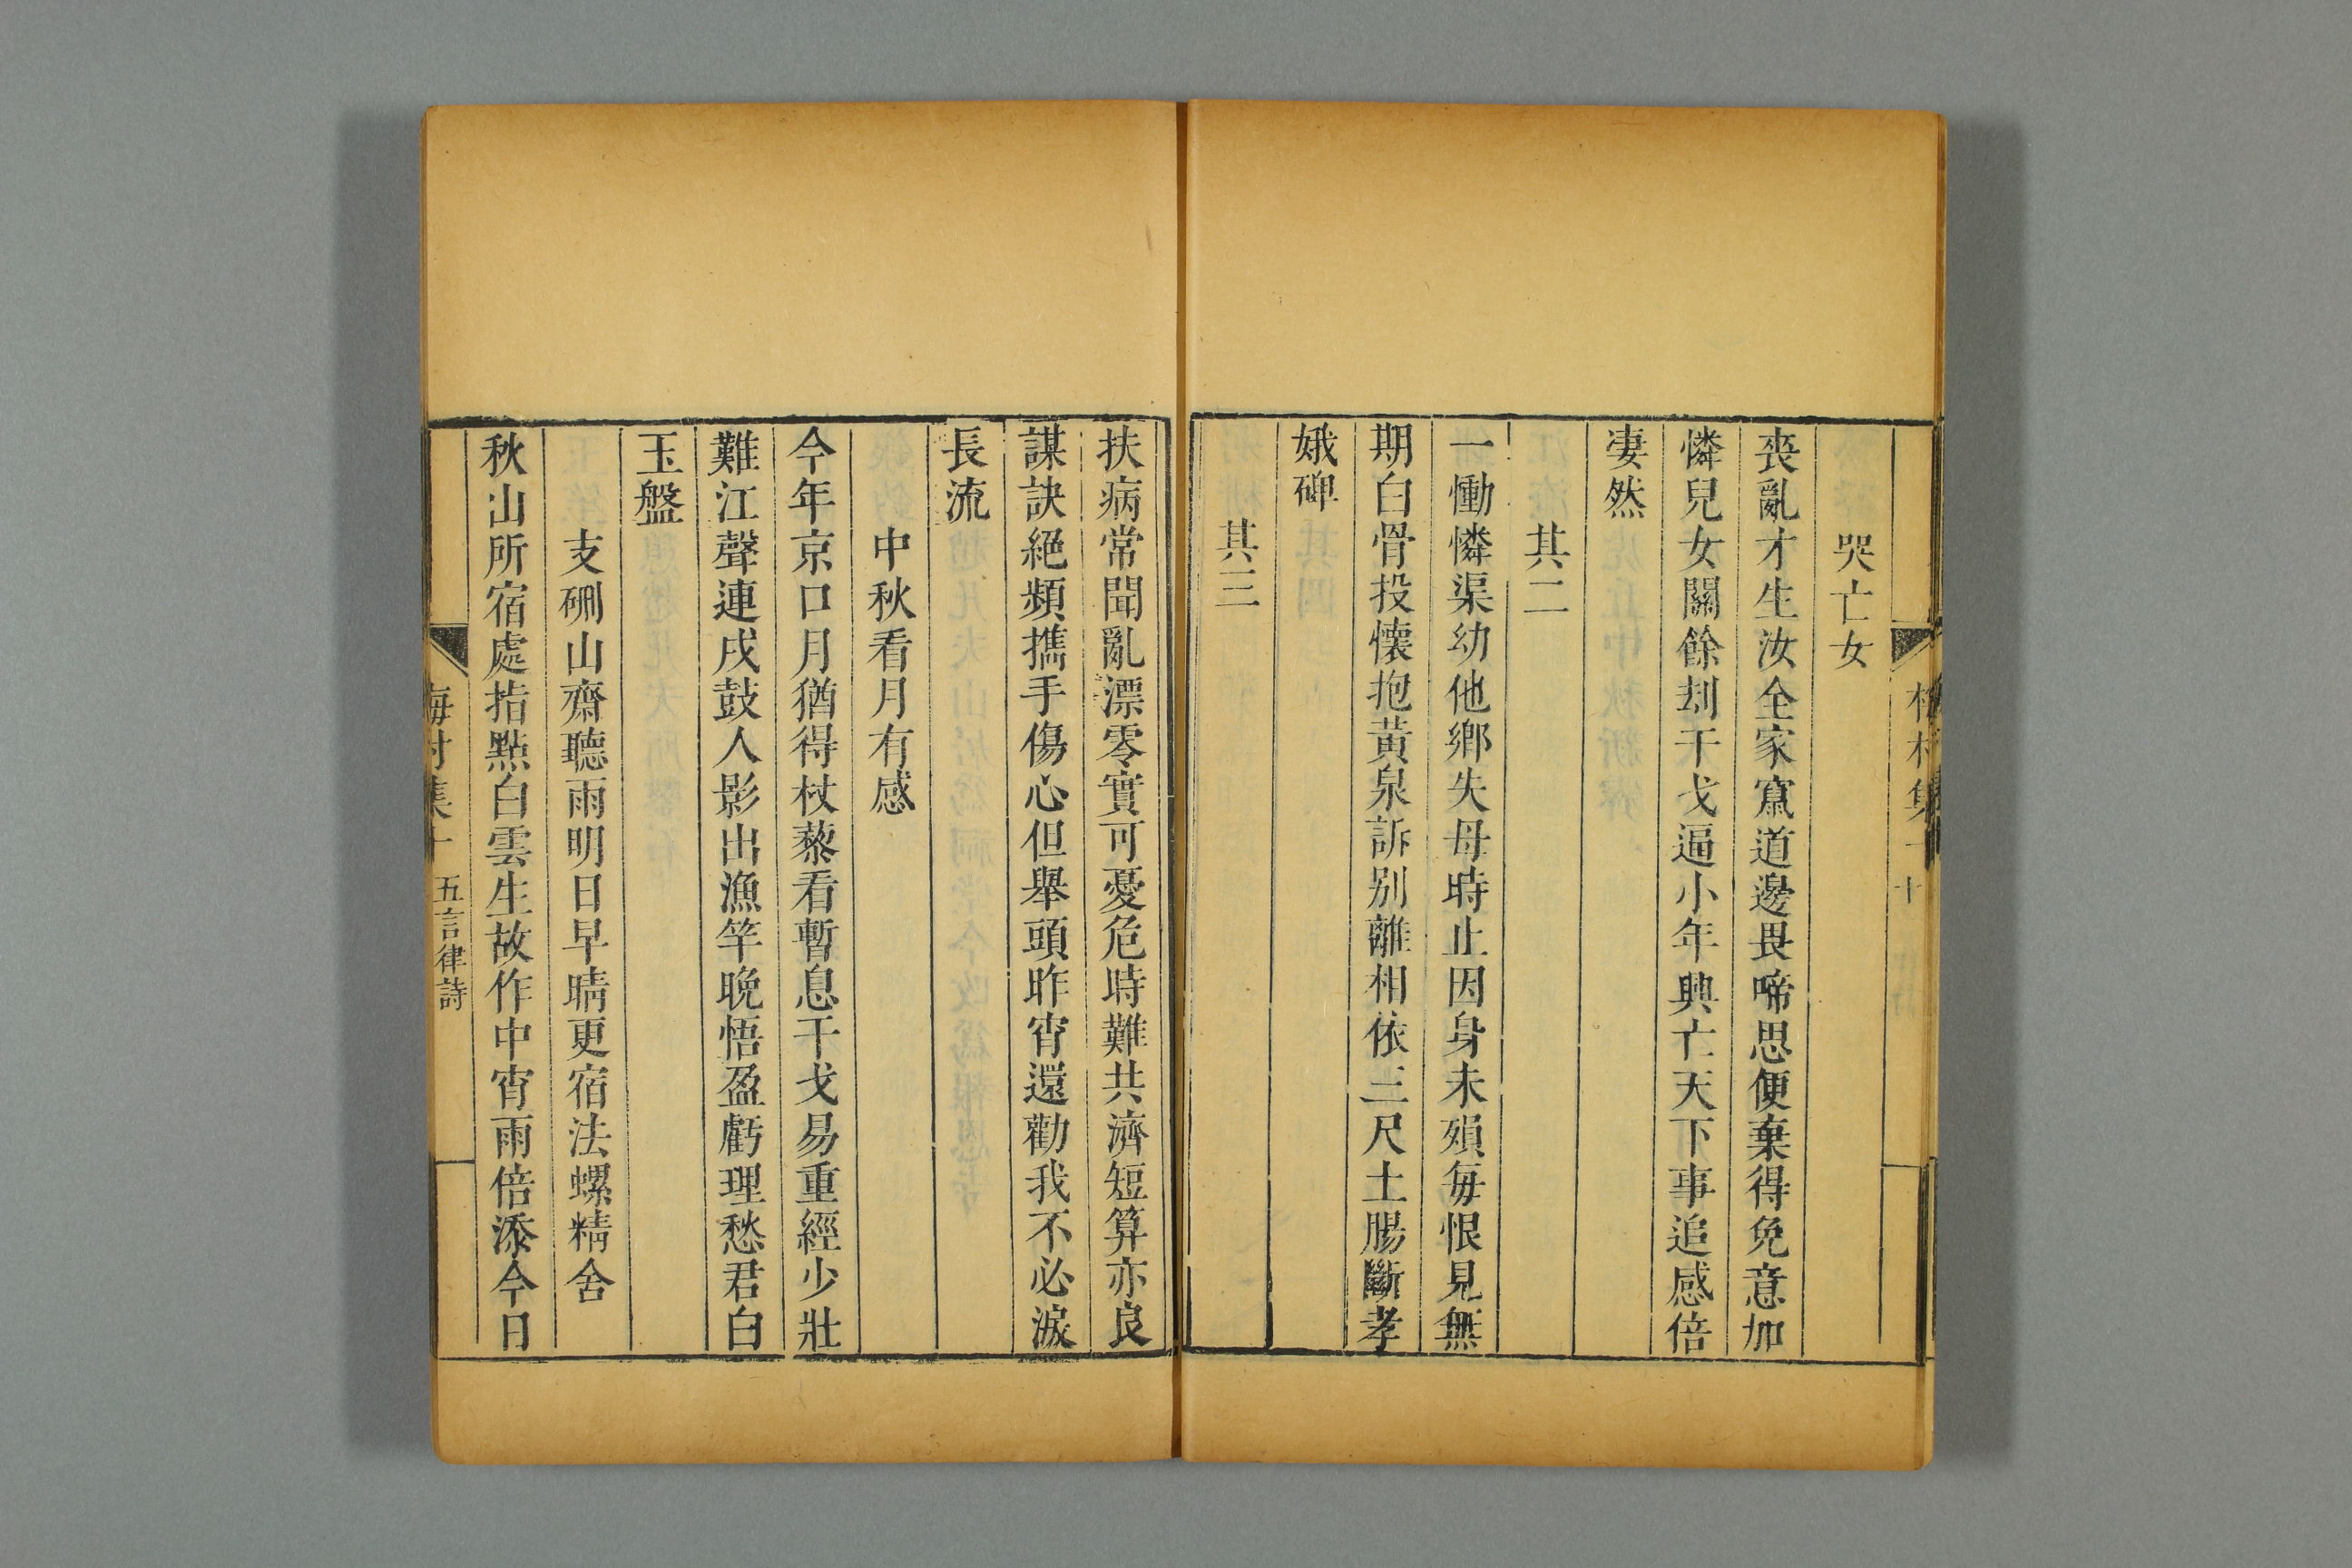 哭亡女
喪亂才生汝全家竄道邊畏啼思便棄得免意加
憐兒女關餘刦干戈逼小年興亡天下事追感倍
凄然
其二
一慟憐渠幼他鄉失母時止因身未殞每恨見無
期白骨投懷抱黃泉訴别離相依三尺土腸斷孝
娥碑
其三
扶病常聞亂漂零實可憂危時難共濟短算亦良
謀訣絕頻攜手傷心但舉頭昨宵還勸我不必淚
長流
中秋看月有感
今年京口月猶得杖藜看暫息干戈易重經少壯
難江聲連戍鼓人影出漁竿晚悟盈虧理愁君白
玉盤
支硎山齋聽雨明日早晴更宿法螺精舍
秋山所宿處指點白雲生故作中宵雨倍添今日
梅村集十 五言律詩